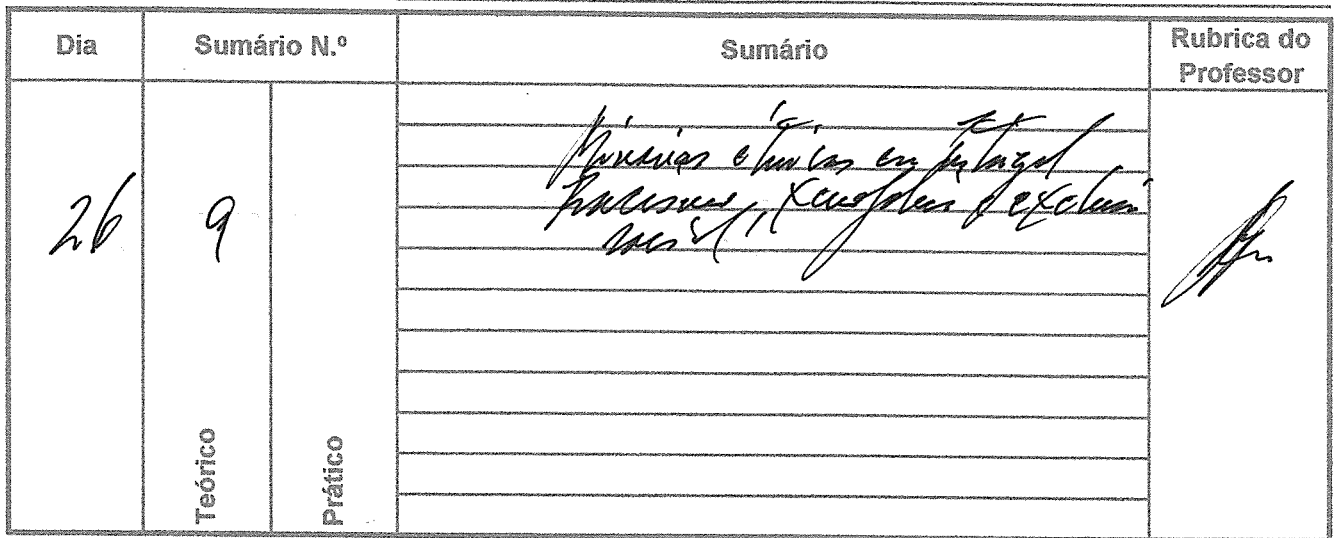 Dia Sumário N.º Sumário Rubrica do Professor
26 9
Minorias étnicas em Portugal
Racismo, xenofobia e exclusão
social
Teórico Prático